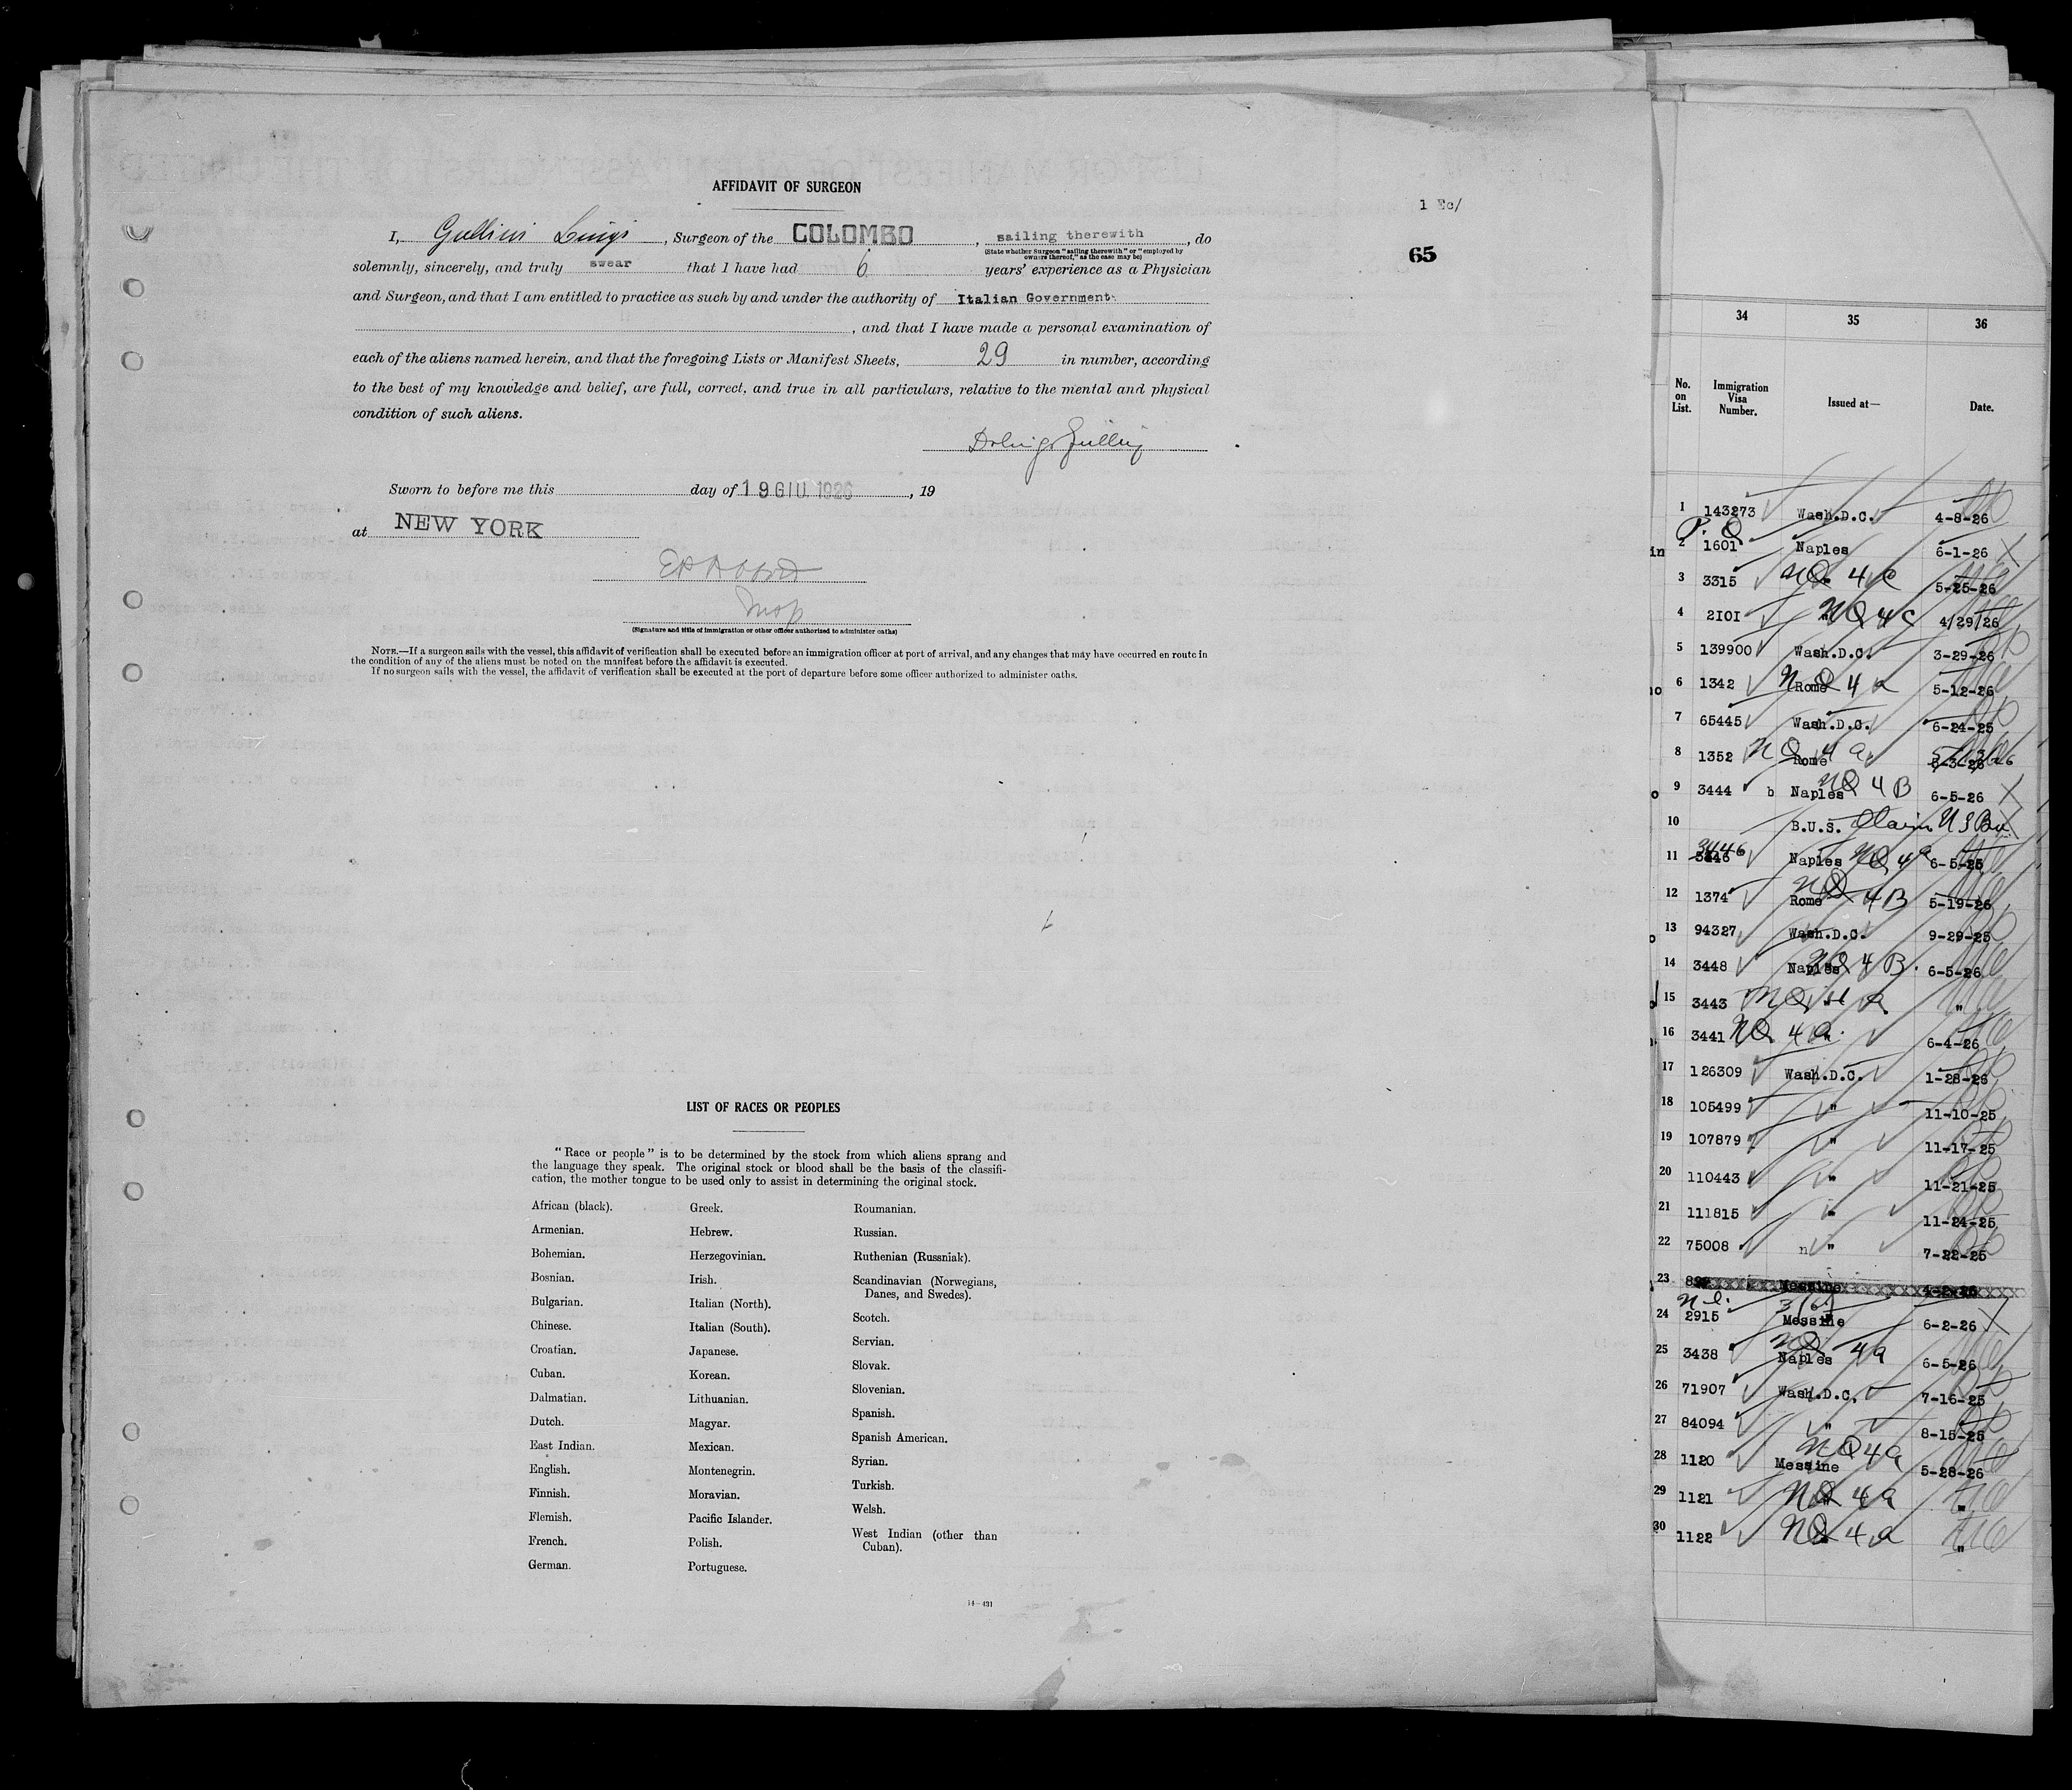 AFFIDAVIT OF SURGEON
1 Ec/
65
I, Gullini Luigi, Surgeon of the COLOMBO, sailing therewith, do
(State whether Surgeon "sailing therewith" or "employed by
owners thereof," as the case may be)
solemnly, sincerely, and truly swear that I have had 6 years' experience as a Physician
and Surgeon, and that I am entitled to practice as such by and under the authority of Italian Government
, and that I have made a personal examination of
each of the aliens named herein, and that the foregoing Lists or Manifest Sheets, 29 in number, according
to the best of my knowledge and belief, are full, correct, and true in all particulars, relative to the mental and physical
condition of such aliens.
Sworn to before me this day of 19 GIU. 1926, 19
at NEW YORK
(Signature and title of immigration or other officer authorized to administer oaths)
NOTE.—If a surgeon sails with the vessel, this affidavit of verification shall be executed before an immigration officer at port of arrival, and any changes that may have occurred en route in
the condition of any of the aliens must be noted on the manifest before the affidavit is executed.
If no surgeon sails with the vessel, the affidavit of verification shall be executed at the port of departure before some officer authorized to administer oaths.
LIST OF RACES OR PEOPLES
"Race or people" is to be determined by the stock from which aliens sprang and
the language they speak. The original stock or blood shall be the basis of the classifi-
cation, the mother tongue to be used only to assist in determining the original stock.
African (black).
Armenian.
Bohemian.
Bosnian.
Bulgarian.
Chinese.
Croatian.
Cuban.
Dalmatian.
Dutch.
East Indian.
English.
Finnish.
Flemish.
French.
German.
Greek.
Hebrew.
Herzegovinian.
Irish.
Italian (North).
Italian (South).
Japanese.
Korean.
Lithuanian.
Magyar.
Mexican.
Montenegrin.
Moravian.
Pacific Islander.
Polish.
Portuguese.
Roumanian.
Russian.
Ruthenian (Russniak).
Scandinavian (Norwegians,
Danes, and Swedes).
Scotch.
Servian.
Slovak.
Slovenian.
Spanish.
Spanish American.
Syrian.
Turkish.
Welsh.
West Indian (other than
Cuban).
14—431
34 35 36
No. on List. Immigration Visa Number. Issued at— Date.
1 143273 Wash.D.C. 4-8-26
2 1601 Naples 6-1-26
3 3315 NQ 4 5-25-26
4 2101 " NQ 4 C 4/29/26
5 139900 Wash.D.C. 3-29-26
6 1342 Rome NQ 4 a 5-12-26
7 65445 Wash.D.C. 6-24-25
8 1352 Rome NQ 4 a
9 3444 b Naples NQ 4 B 6-5-26
10 B.U.S. Claim U S
11 3446 Naples NQ 4 a 6-5-25
12 1374 Rome NQ 4 B 5-19-26
13 94327 Wash.D.C. 9-29-25
14 3448 Naples NQ 4 B 6-5-26
15 3443 " NQ 4 a "
16 3441 " NQ 4 a 6-4-26
17 126309 Wash.D.C. 1-28-26
18 105499 " 11-10-25
19 107879 " 11-17-25
20 110443 " 11-21-25
21 111815 " 11-24-25
22 75008 n " 7-22-25
23 Messine 4-2-26
24 2915 Messine 6-2-26
25 3438 Naples NQ 4a 6-5-26
26 71907 Wash.D.C. 7-16-25
27 84094 " 8-15-25
28 1120 Messine NQ 4a 5-28-26
29 1121 " NQ 4a "
30 1122 " NQ 4 a "